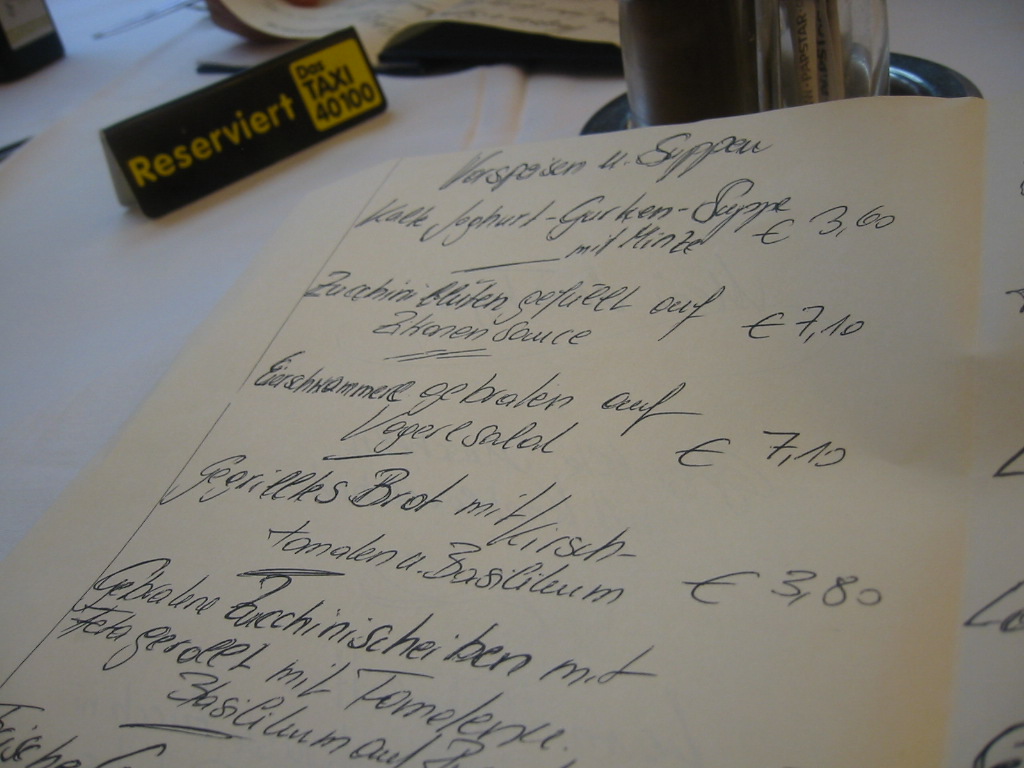 Reserviert
Das
TAXI
40100
Vorspeisen u. Suppen
Kalte Joghurt-Gurken-Suppe
mit Minze € 3,60
Zucchiniblüten gefüllt auf
Zitronensauce € 7,10
Eierschwammerl gebraten auf
Vogerlsalat € 7,10
Gegrilltes Brot mit Kirsch-
tomaten u. Basilikum € 3,80
Gebratene Zucchinischeiben mit
Feta gerollt mit Tomaten u.
Basilikum auf